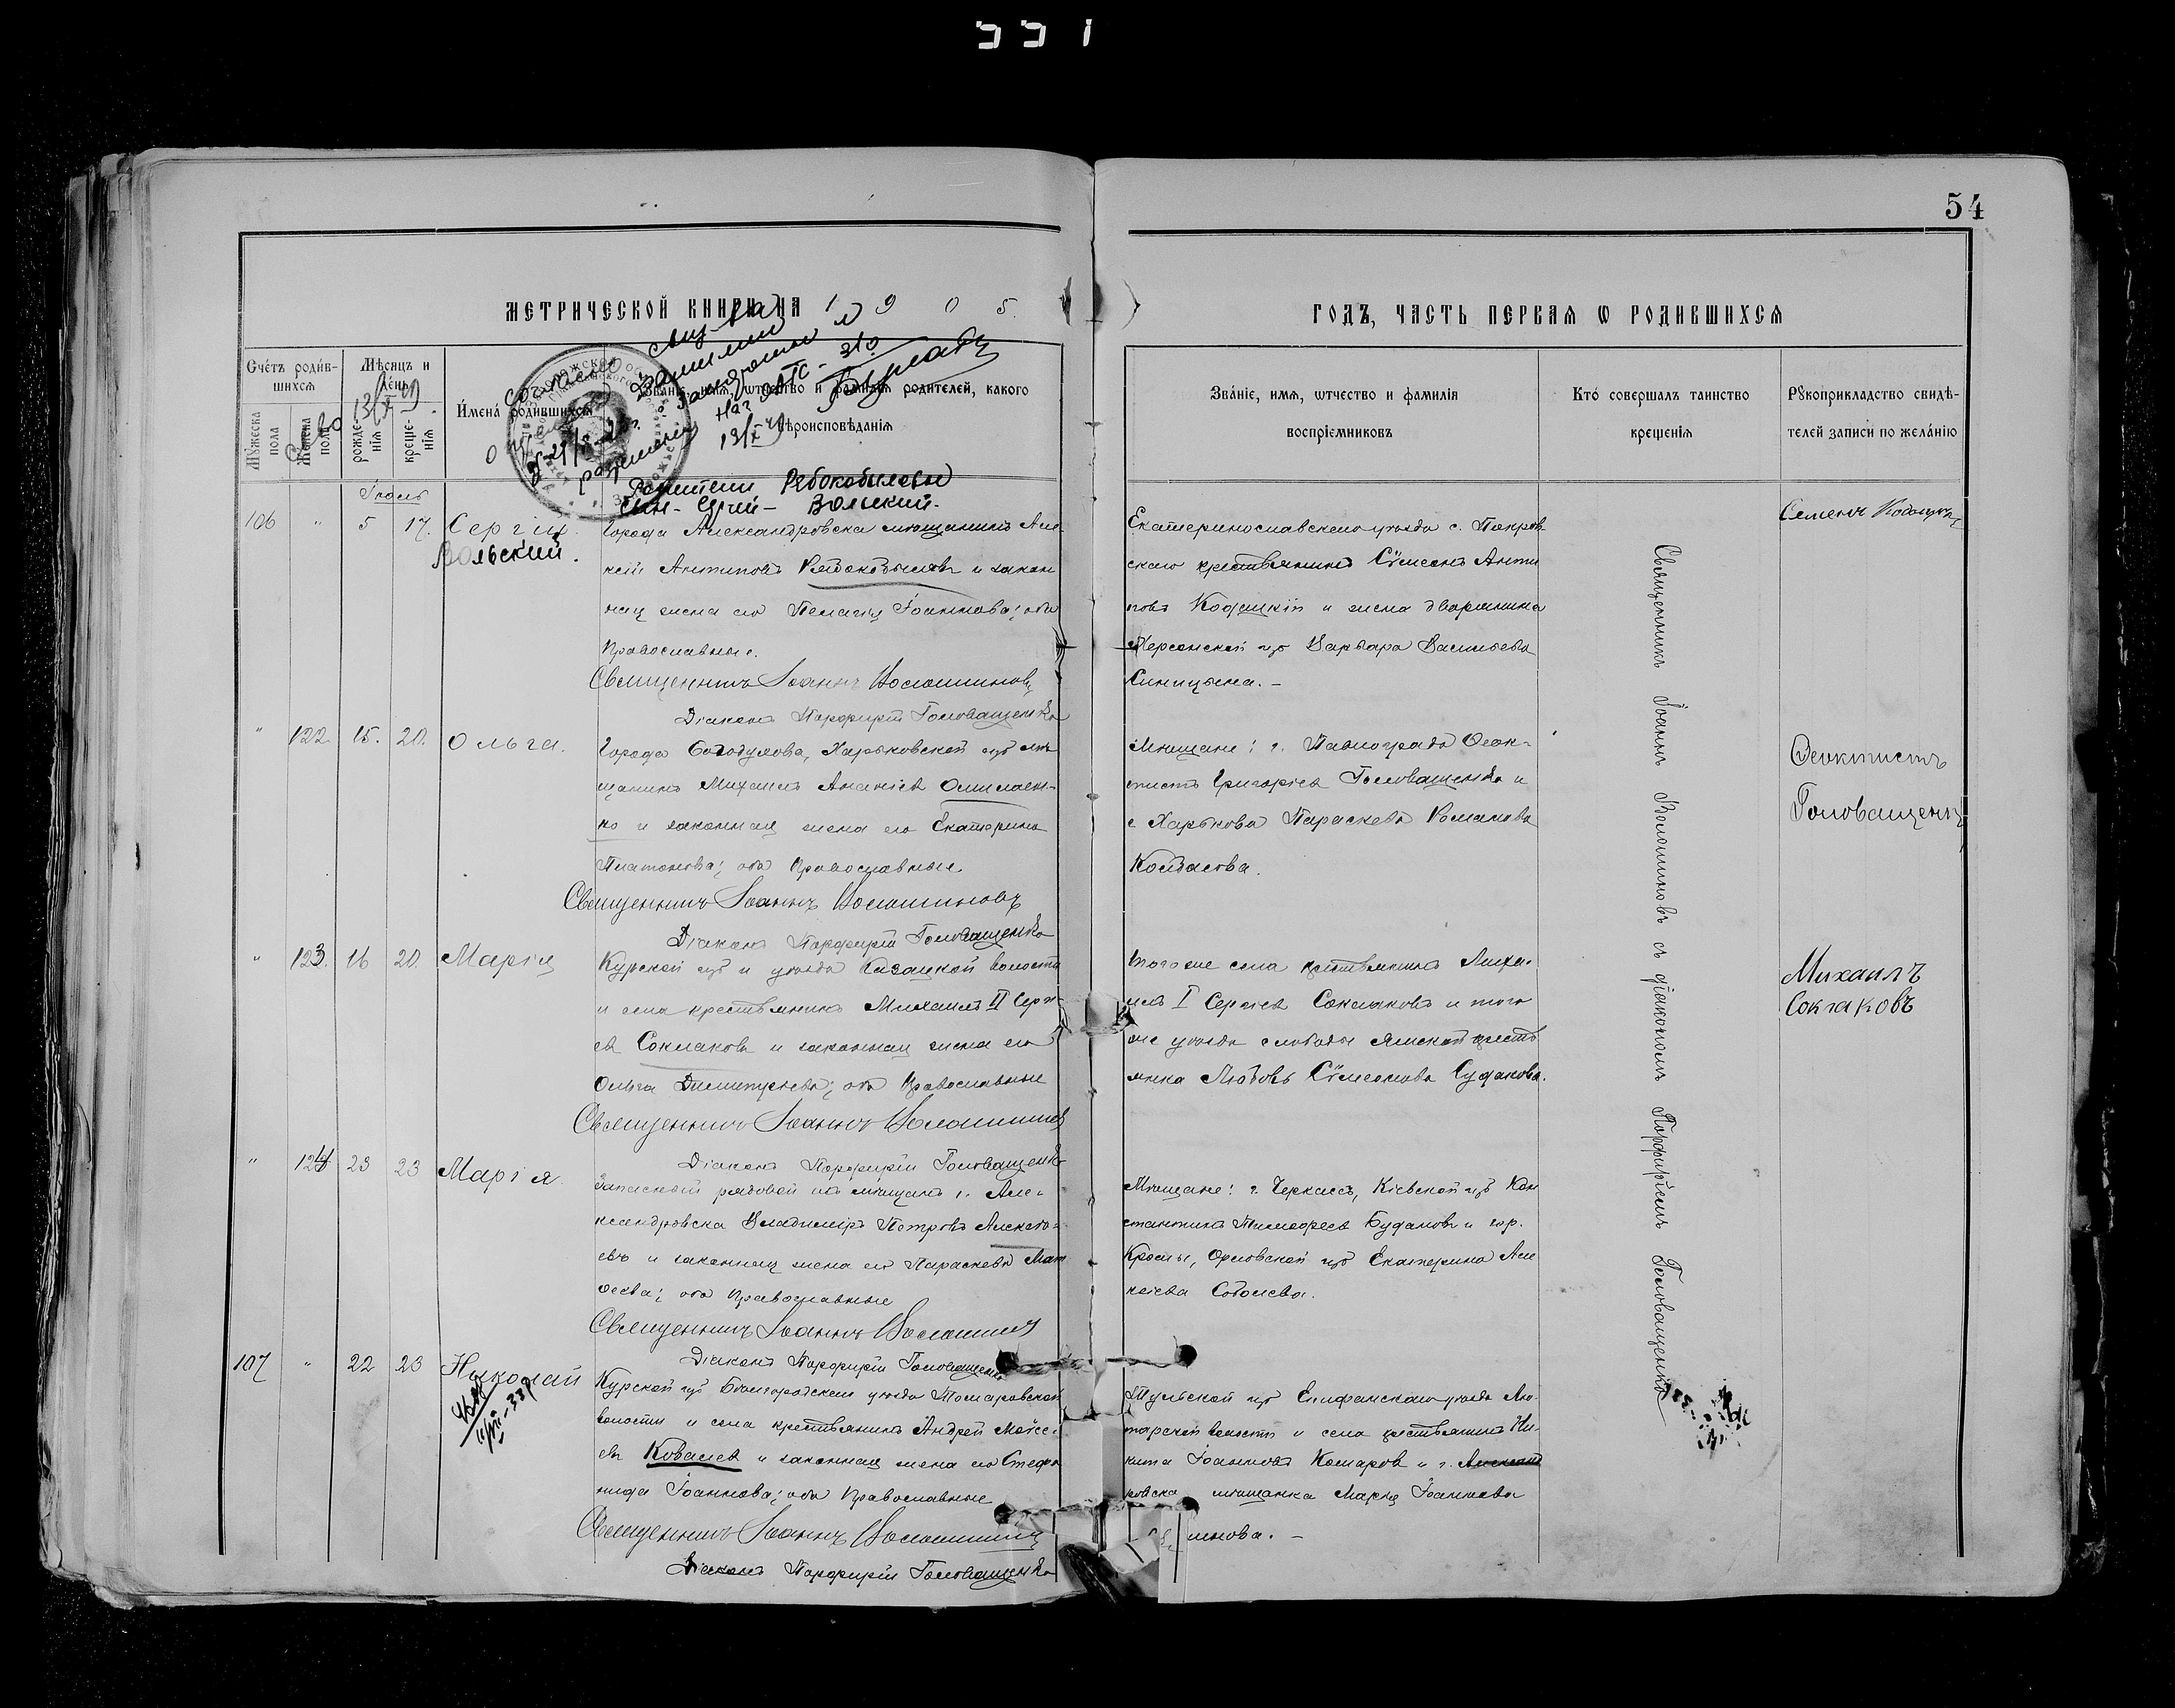 54
МЕТРИЧЕСКОЙ КНИГИ НА 1905.
ГОДЪ, ЧАСТЬ ПЕРВАЯ Ѡ РОДИВШИХСЯ
Счетъ родившихся
Мужеска пола
Женска пола
Мѣсяцъ и день
рожденія
крещенія
Имена родившихся
Званіе, имя, ѡтчество и фамилія родителей, какого
вѣроисповѣданія
Званіе, имя, ѡтчество и фамилія
воспріемниковъ
Кто совершалъ таинство
крещенія
Рꙋкоприкладство свидѣ-
телей записи по желанію
Родители Рябокобыловы
Сын - Сергей - Вольский.
106 " 5 17. Сергій
Вольский.
Города Александровска мѣщанинъ Але-
ксій Антиповъ Рябокобыловъ и закон
ная жена его Пелагія Іоаннова; оба
Православные.
Священникъ Іоаннъ Волошиновъ
Діаконъ Порфирій Головащенко
Екатеринославскаго уѣзда с. Покров-
скаго крестьянинъ Сѷмеонъ Анти
повъ и жена дворянина
Херсонской губ Варвара Васильева
Синицына. -
Семенъ
" 122 15. 20. Ольга.
Города Богодухова, Харьковской губ мѣ
щанинъ Михаилъ Ананіевъ
и законная жена его Екатерина
Платонова; оба Православные.
Священникъ Іоаннъ Волошиновъ
Діаконъ Порфирій Головащенко
Мѣщане: г. Павлограда Ѳеок-
тистъ Григорьевъ Головащенко и
г. Харькова Параскева Романова
Колбасова.
Ѳеоктистъ
Головащенко
" 123. 16 20. Марія
Курской губ и уѣзда Казацкой волости
и села крестьянинъ Михаилъ II Серге-
евъ Соклаковъ и законная жена его
Ольга Димитріева; оба Православные
Священникъ Іоаннъ Волошиновъ
Діаконъ Порфирій Головащенко
того же села крестьянинъ Миха-
илъ I Сергѣевъ Соклаковъ и того
же уѣзда слободы Ямской кресть
янка Любовь Сѷмеонова Судакова.
Михаилъ
Соклаковъ
" 124 23 23 Марія.
Запасный рядовой изъ мѣщанъ г. Але-
ксандровска Владиміръ Петровъ Алексѣ-
евъ и законная жена его Параскева Мат
ѳеева; оба Православные
Священникъ Іоаннъ Волошиновъ
Діаконъ Порфирій Головащенко
Мѣщане: г. Черкассъ, Кіевской губ Кон
стантинъ Тимоѳеевъ Будановъ и гор.
Кромы, Орловской губ Екатерина Але
ксіева Соболева.
107 " 22 23 Николай
Курской губ Бѣлгородскаго уѣзда Томаровской
волости и села крестьянинъ Андрей Моѵсе-
евъ Ковалевъ и законная жена его Стефа
нида Іоаннова; оба Православные
Священникъ Іоаннъ Волошиновъ
Діаконъ Порфирій Головащенко
Тульской губ Епифанскаго уѣзда Лю-
торской волости и села крестьянинъ Ни-
кита Іоанновъ Комаровъ и г. Александ
ровска мѣщанка Марія Іоаннова
Священникъ Іоаннъ Волошиновъ съ діакономъ Порфиріемъ Головащенко